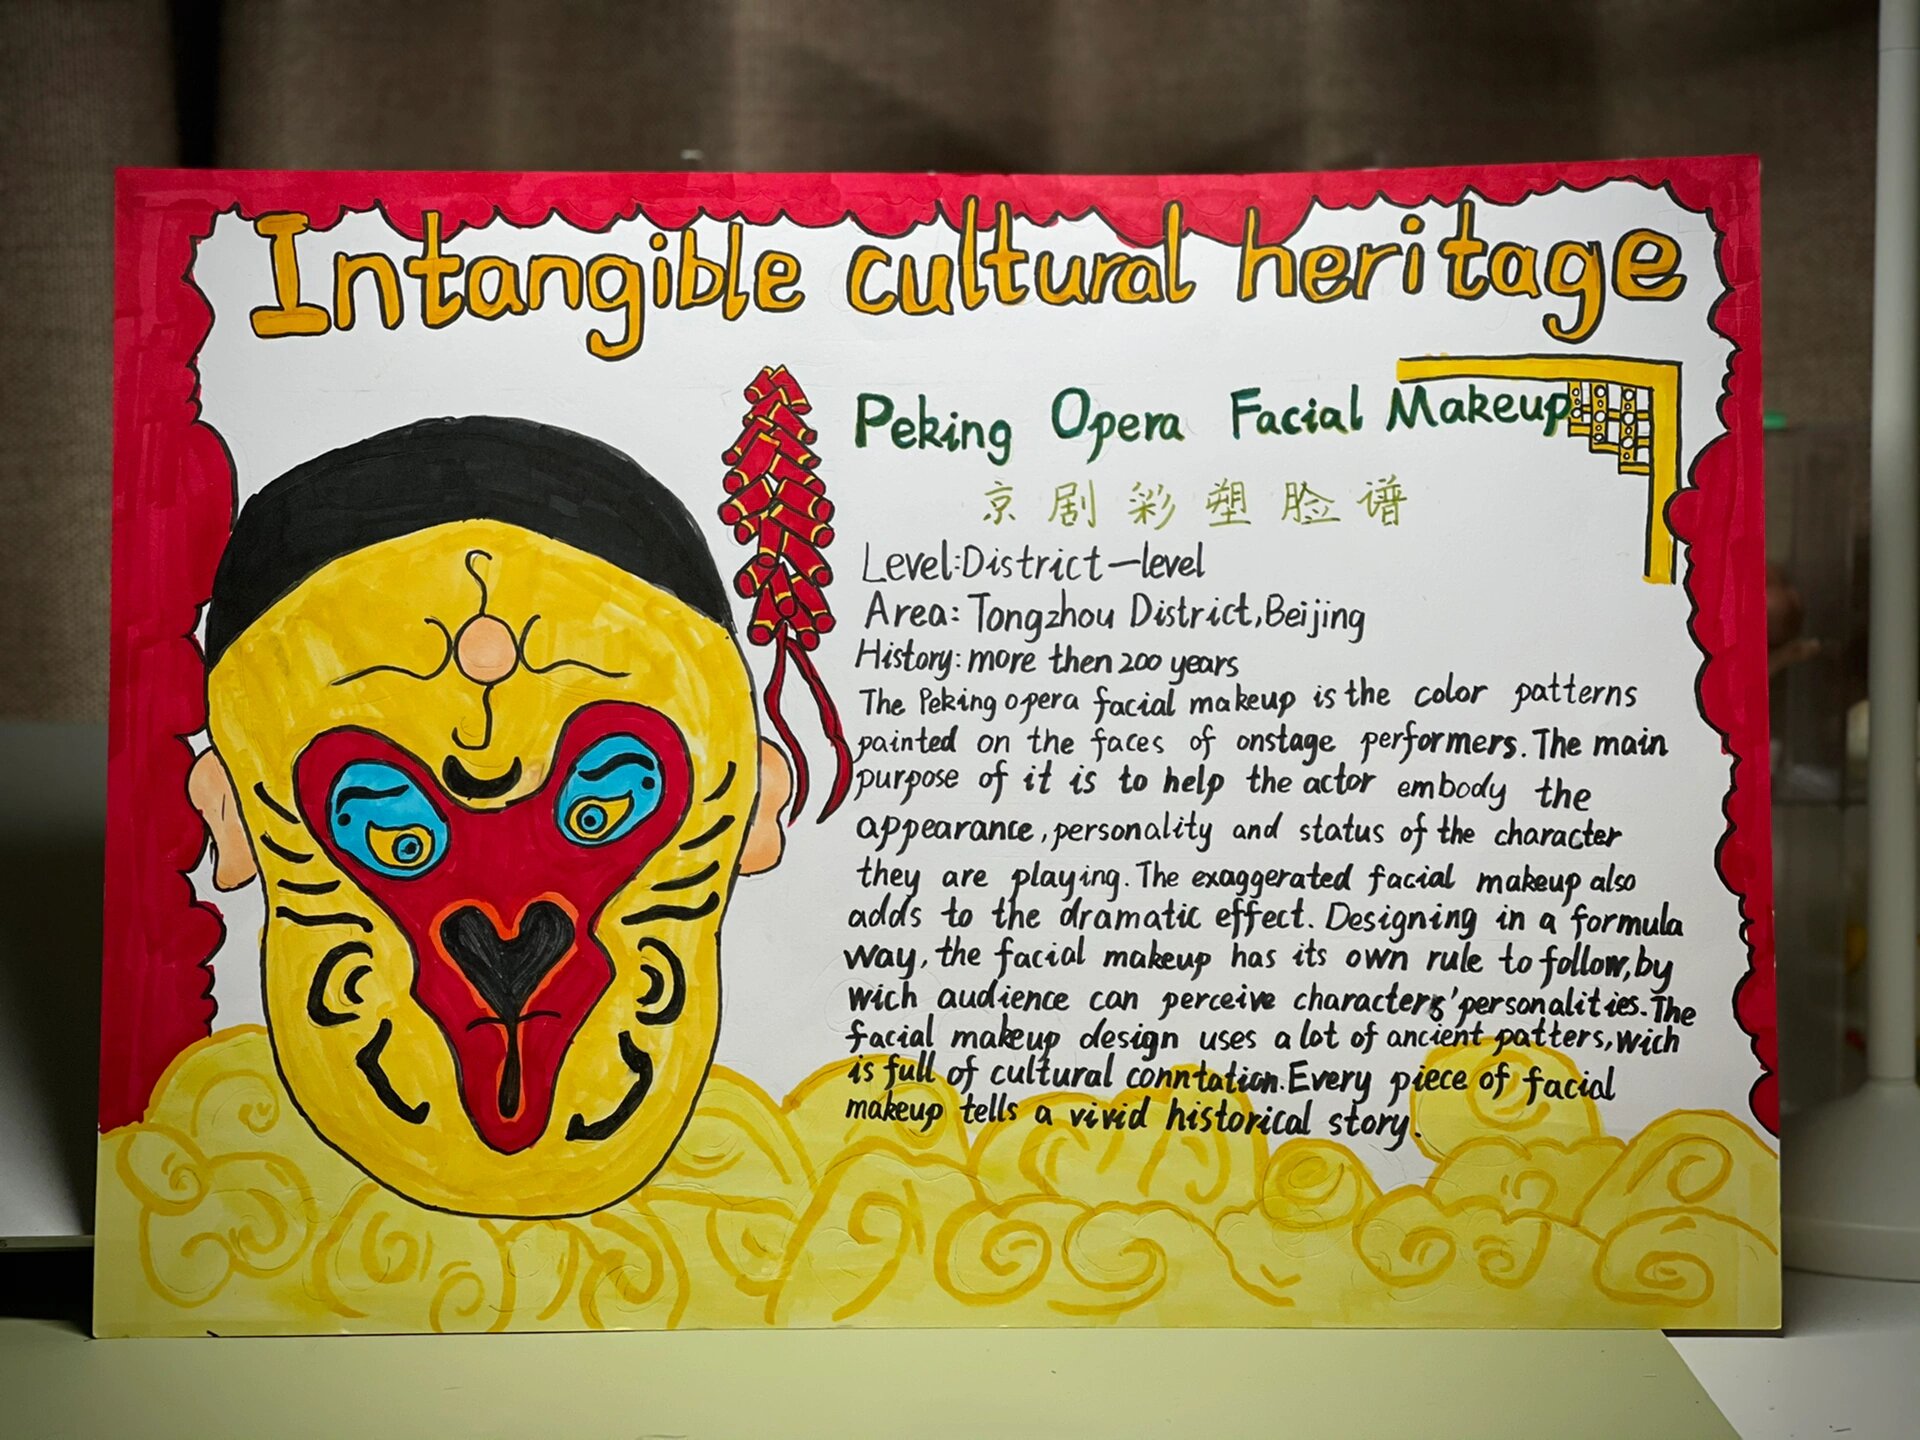 Intangible cultural heritage
Peking Opera Facial Makeup
京剧彩塑脸谱
Level:District-level
Area: Tongzhou District,Beijing
History: more then 200 years
The Peking opera facial makeup is the color patterns
painted on the faces of onstage performers. The main
purpose of it is to help the actor embody the
appearance, personality and status of the character
they are playing. The exaggerated facial makeup also
adds to the dramatic effect. Designing in a formula
way, the facial makeup has its own rule to follow, by
wich audience can perceive characters' personalities. The
facial makeup design uses a lot of ancient patters, wich
is full of cultural conntation. Every piece of facial
makeup tells a vivid historical story.